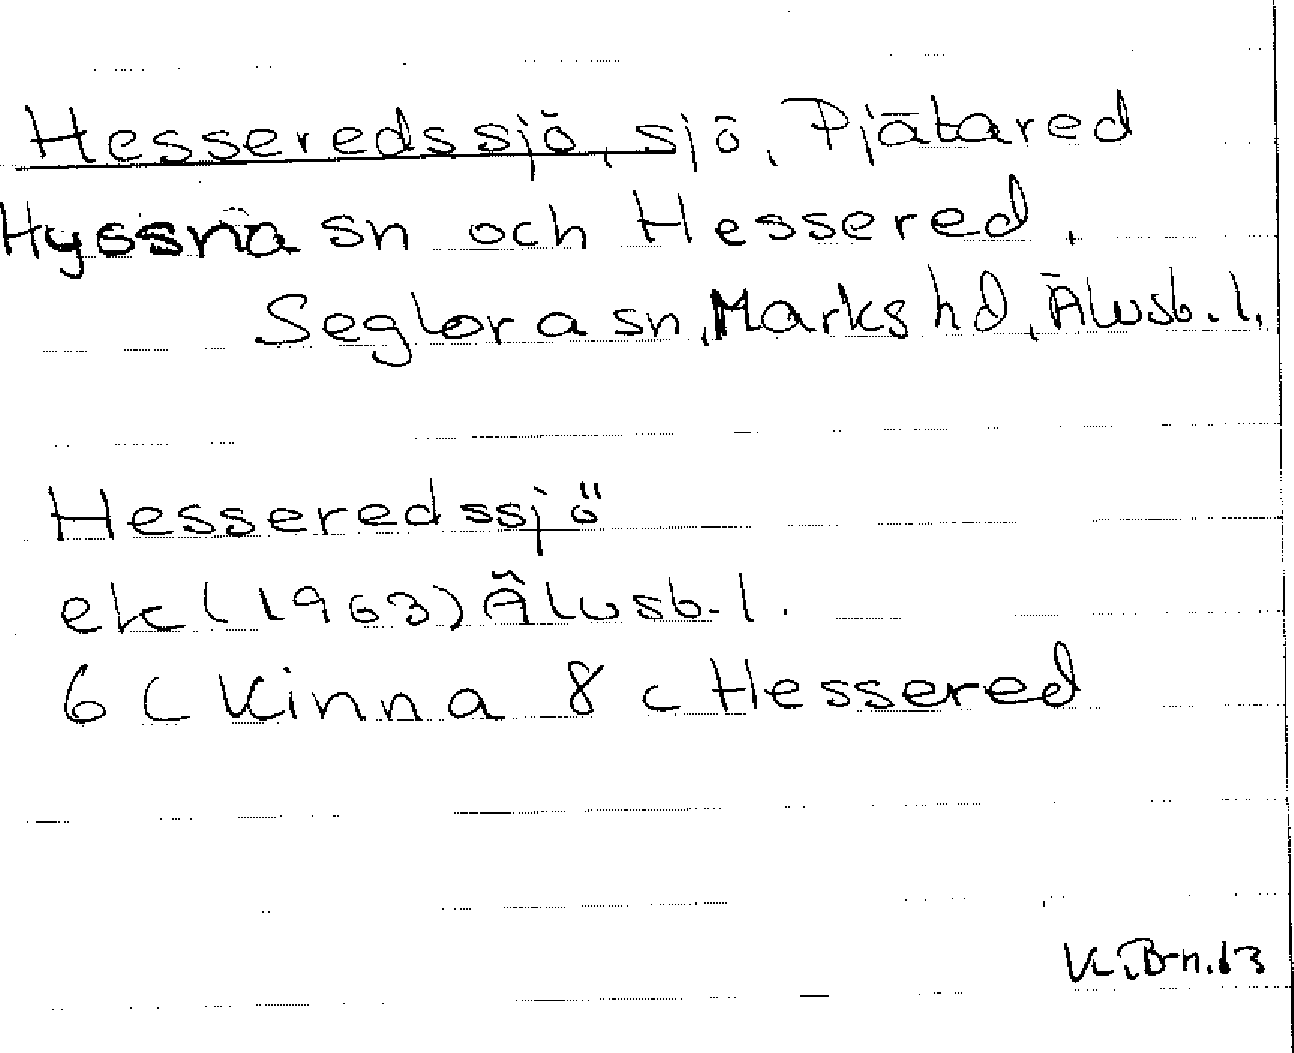 Hesseredssjö, sjö, Pjätared
Hyssna sn och Hessered,
Seglora sn, Marks hd, Älvsb. l.
Hesseredssjö
ek (1963) Älvsb. l.
6 C Kinna 8 c Hessered
K. B-n. 63